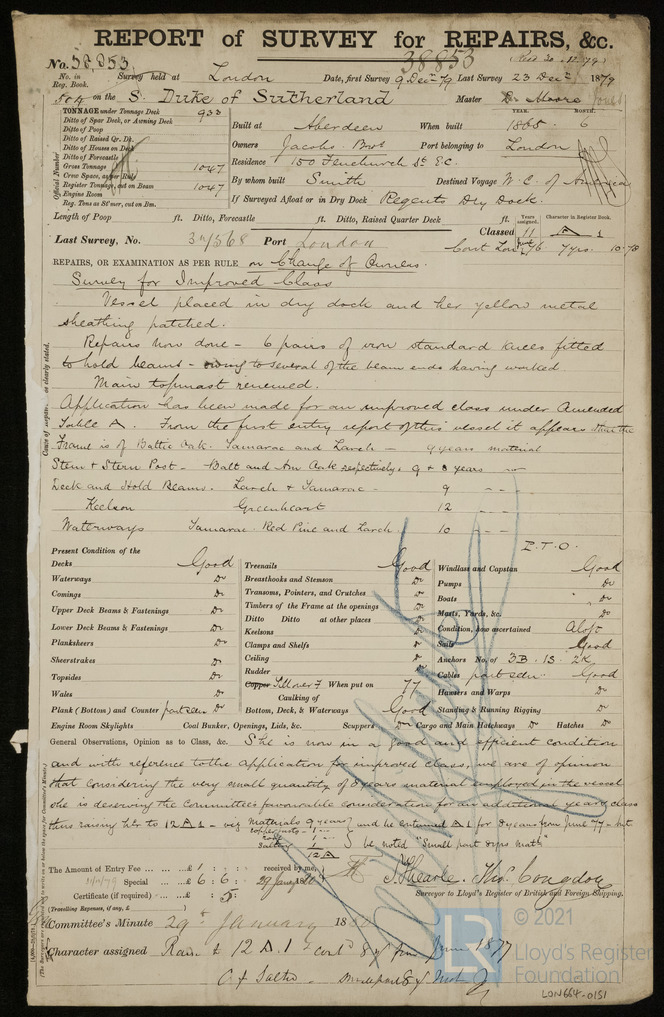 REPORT of SURVEY for REPAIRS, &c.
No. 38,853. 38853 Recd 30.12.79
No. in Reg. Book. Survey held at London Date, first Survey 9 Decr 79 Last Survey 23 Decr 1879
504 on the S. Duke of Sutherland Master Moore
TONNAGE under Tonnage Deck 933
Ditto of Spar Deck, or Awning Deck
Ditto of Poop
Ditto of Raised Qr. Dk.
Ditto of Houses on Deck
Ditto of Forecastle
Gross Tonnage 1047
Crew Space, as per Rule
Register Tonnage, cut on Beam 1047
Engine Room
Reg. Tons as St'mer, cut on Bm.
Official Number
YEAR. MONTH.
Built at Aberdeen When built 1865 6
Owners Jacobs Bros Port belonging to London
Residence 150 Fenchurch St EC.
By whom built Smith Destined Voyage W. C. of America
If Surveyed Afloat or in Dry Dock Regents Dry Dock.
Length of Poop ft. Ditto, Forecastle ft. Ditto, Raised Quarter Deck ft.
Years assigned. Character in Register Book.
Last Survey, No. 38/568 Port London Classed 11 A 1
Cont Lon 76 7 yrs. 10.78
REPAIRS, OR EXAMINATION AS PER RULE on Change of Owners.
Survey for Improved Class
Vessel placed in dry dock and her yellow metal
sheathing patched.
Repairs now done - 6 pairs of iron standard knees fitted
to hold beams - owing to several of the beam ends having worked
Main topmast renewed.
Application has been made for an improved class under Amended
Table A. From the first entry report of this vessel it appears that the
Frame is of Baltic Oak. Tamarac and Larch - 9 years material
Stem & Stern Post - Balt and Am Oak respectively, 9 & 8 years
Deck and Hold Beams. Larch & Tamarac - 9 - -
Keelson Greenheart 12 - -
Waterways Tamarac. Red Pine and Larch. 10 - -
P.T.O.
Present Condition of the
Decks Good
Waterways Do
Comings Do
Upper Deck Beams & Fastenings Do
Lower Deck Beams & Fastenings Do
Planksheers Do
Sheerstrakes Do
Topsides Do
Wales Do
Plank (Bottom) and Counter part seen Do
Treenails Good
Breasthooks and Stemson Do
Transoms, Pointers, and Crutches Do
Timbers of the Frame at the openings Do
Ditto Ditto at other places Do
Keelsons Do
Clamps and Shelfs Do
Ceiling Do
Rudder Do
Copper When put on 77
Caulking of
Bottom, Deck, & Waterways Good
Windlass and Capstan Good
Pumps Do
Boats Do
Masts, Yards, &c. Do
Condition, how ascertained Aloft
Sails Good
Anchors No. of 3B. 1S. 2K
Cables part seen Good
Hawsers and Warps Do
Standing & Running Rigging Do
Engine Room Skylights Coal Bunker, Openings, Lids, &c. Scuppers Do Cargo and Main Hatchways Do Hatches Do
General Observations, Opinion as to Class, &c. She is now in a good and efficient condition
and with reference to the application for improved class, we are of opinion
that considering the very small quantity of 8 years material employed in the vessel
she is deserving the Committees favourable consideration for an additional years class
thus raising her to 12 A 1 - viz Materials 9 years and be continued A1 for 8 years from June 77 - but
Salting 1
12 A
be noted "Small part
The Amount of Entry Fee ... £ 1 : : received by me,
Special ... £ 6 : 6 : 29 Jany 1880
Certificate (if required) : 5 :
(Travelling Expenses, if any, £ )
J. Shearle. Thos. Congdon
Surveyor to Lloyd's Register of British and Foreign Shipping.
Committee's Minute 29th January 1880
Character assigned Raise to 12 A. 1 - contd 8 yrs from June 1877
© 2021
LR
Lloyd's Register
Foundation
LON664-0151